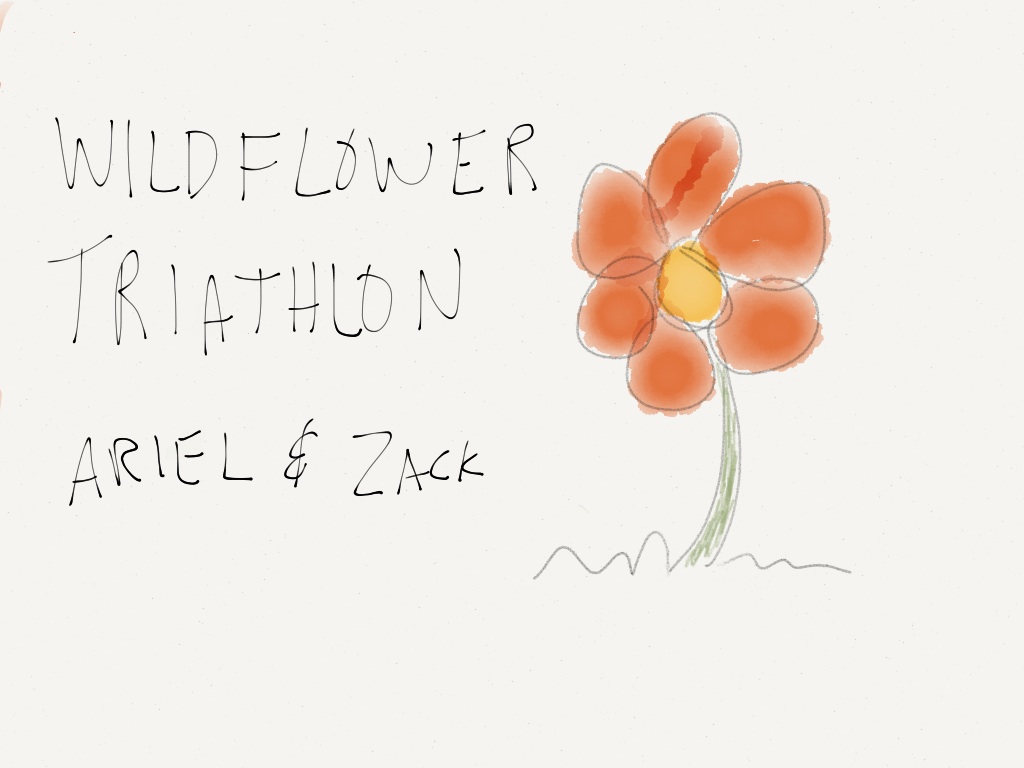 WILDFLOWER
TRIATHLON
ARIEL & ZACK